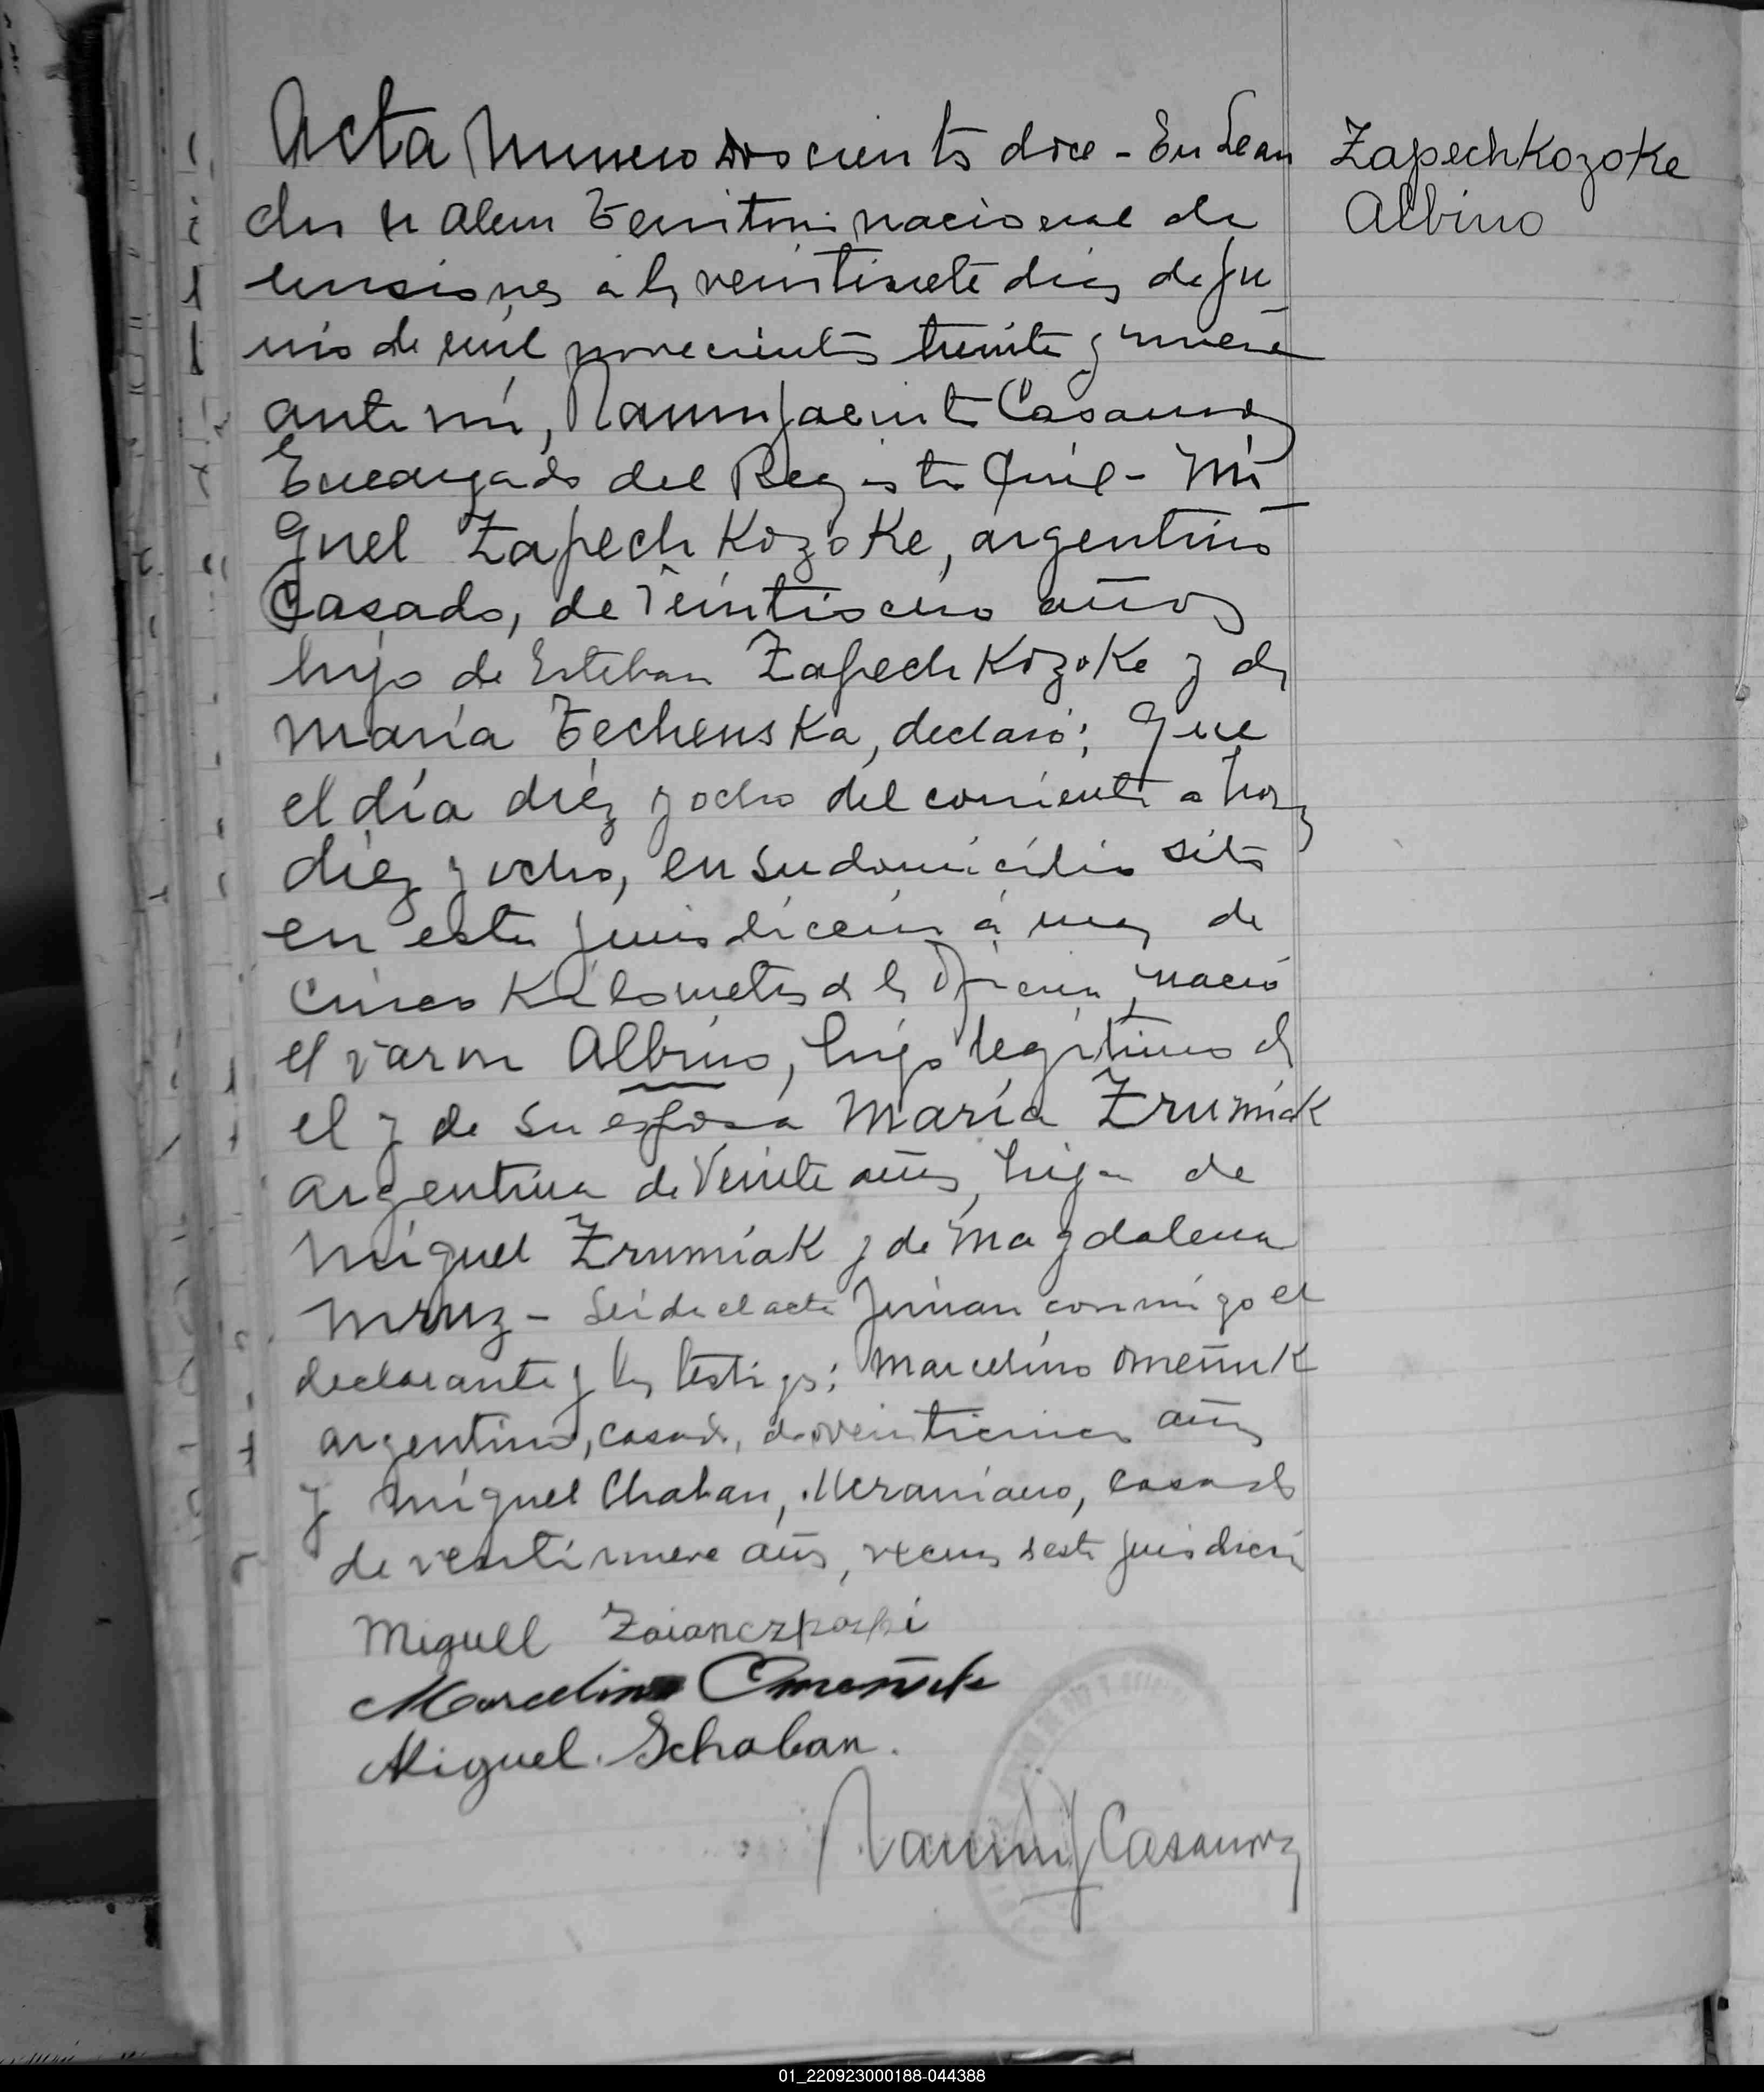 Acta Numero doscientos doce - En Lean
dro N Alem Territorio nacional de
Misiones a los veintisiete dias de Ju
nio de mil novecientos treinta y nueve
ante mi, Ramon Jacinto Casanova
Encargado del Registro Civil - Mi
guel Zapechkozoke, argentino
Casado, de veintiseis años
hijo de Esteban Zapechkozoke y de
María Techenska, declaró; Que
el día diéz y ocho del corriente a horas
diez y ocho, en su domicilio sito
en esta jurisdiccion á mas de
cinco Kilometros de la Oficina, nació
el varon Albino, hijo legítimo de
el y de su esposa María Zrumiak
argentina de Veinte años, hija de
Miguel Zrumiak y de Magdalena
Mruz - Leida el acta firman conmigo el
declarante y los testigos; Marcelino Omeñuk
argentino, casado, de veinticinco años
y Miguel Chaban, Ucraniano, casado
de veintinueve años, vecinos de esta jurisdiccion
Miguel
Marcelino Omeñuk
Miguel. Schaban.
Ramon J Casanova
Zapechkozoke
Albino
01_220923000188-044388